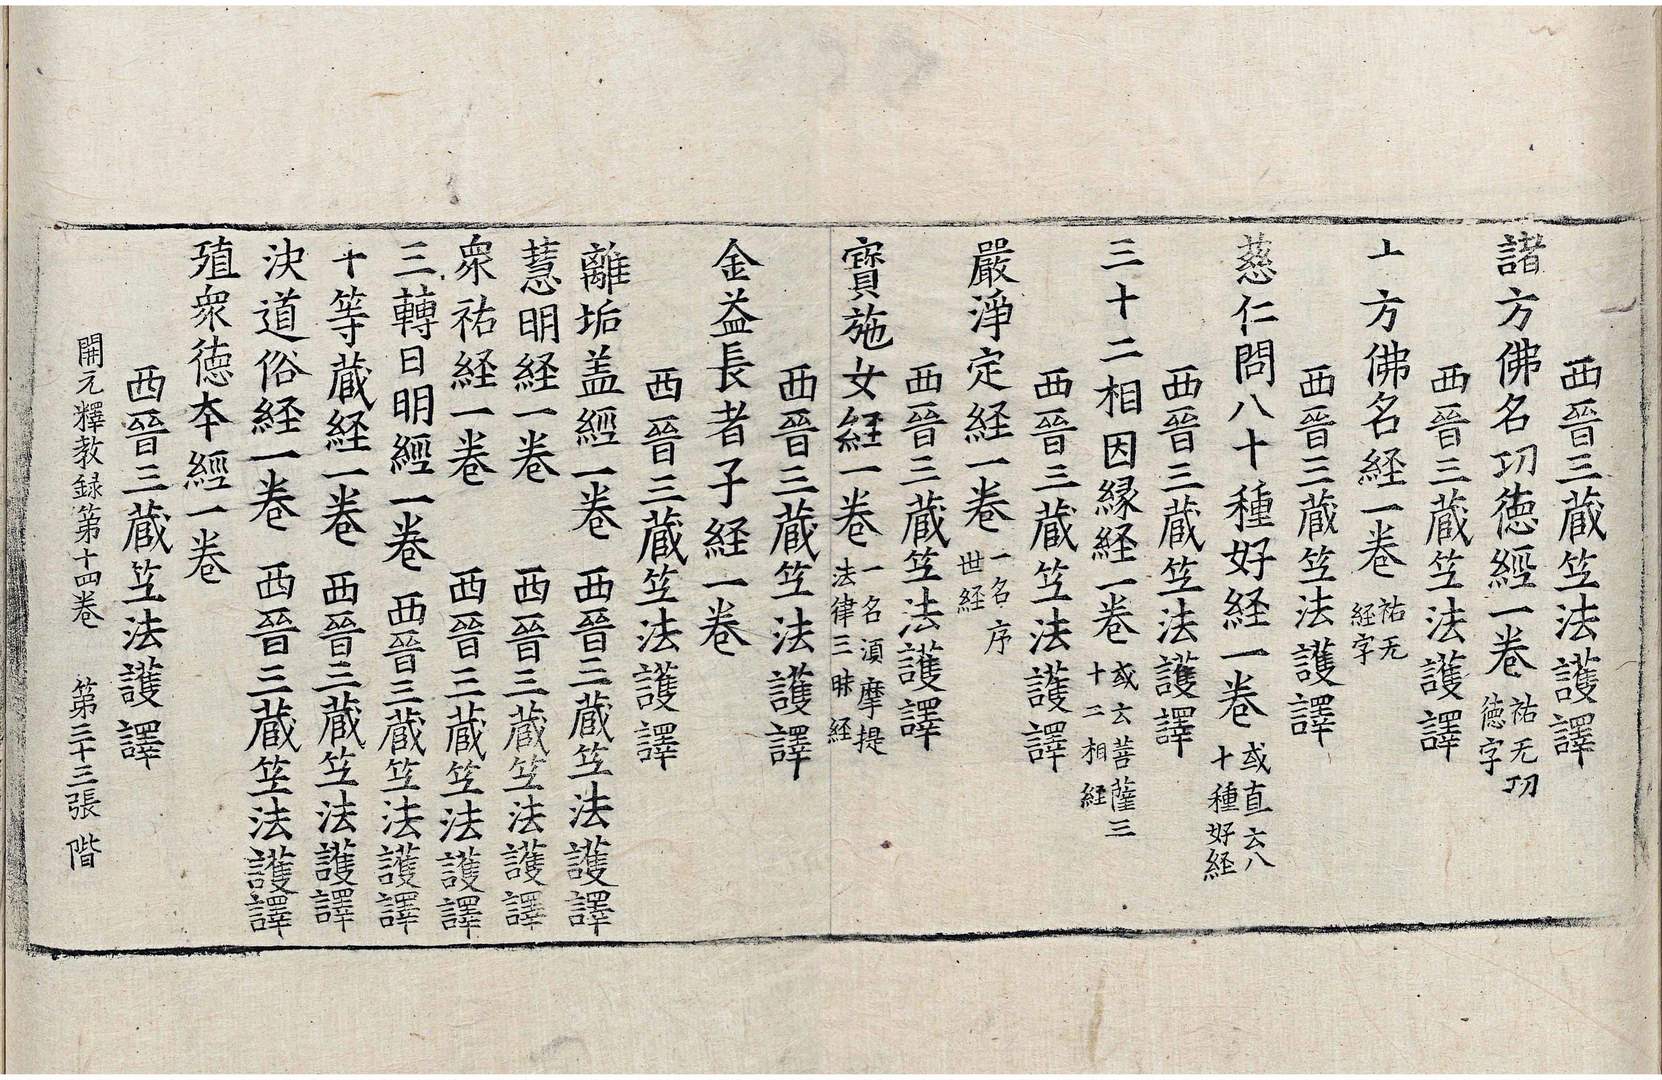 西晉三藏笠法護譯
諸方佛名功徳經一卷 祐无功
徳字
西晉三藏笠法護譯
十方佛名経一卷 祐无
経字
西晉三藏笠法護譯
慈仁問八十種好経一卷 或直云八
十種好経
西晉三藏笠法護譯
三十二相因縁経一卷 或云菩薩三
十二相経
西晉三藏笠法護譯
嚴淨定経一卷 一名序
世経
西晉三藏笠法護譯
寶施女経一卷 一名湏摩提
法律三昧経
西晉三藏笠法護譯
金益長者子経一卷
西晉三藏笠法護譯
離垢盖經一卷 西晉三藏笠法護譯
慧明経一卷 西晉三藏笠法護譯
衆祐経一卷 西晉三藏笠法護譯
三轉日明經一卷 西晉三藏笠法護譯
十等藏経一卷 西晉三藏笠法護譯
决道俗経一卷 西晉三藏笠法護譯
殖衆徳本經一卷
西晉三藏笠法護譯
開元釋教録第十四卷 第三十三張 階